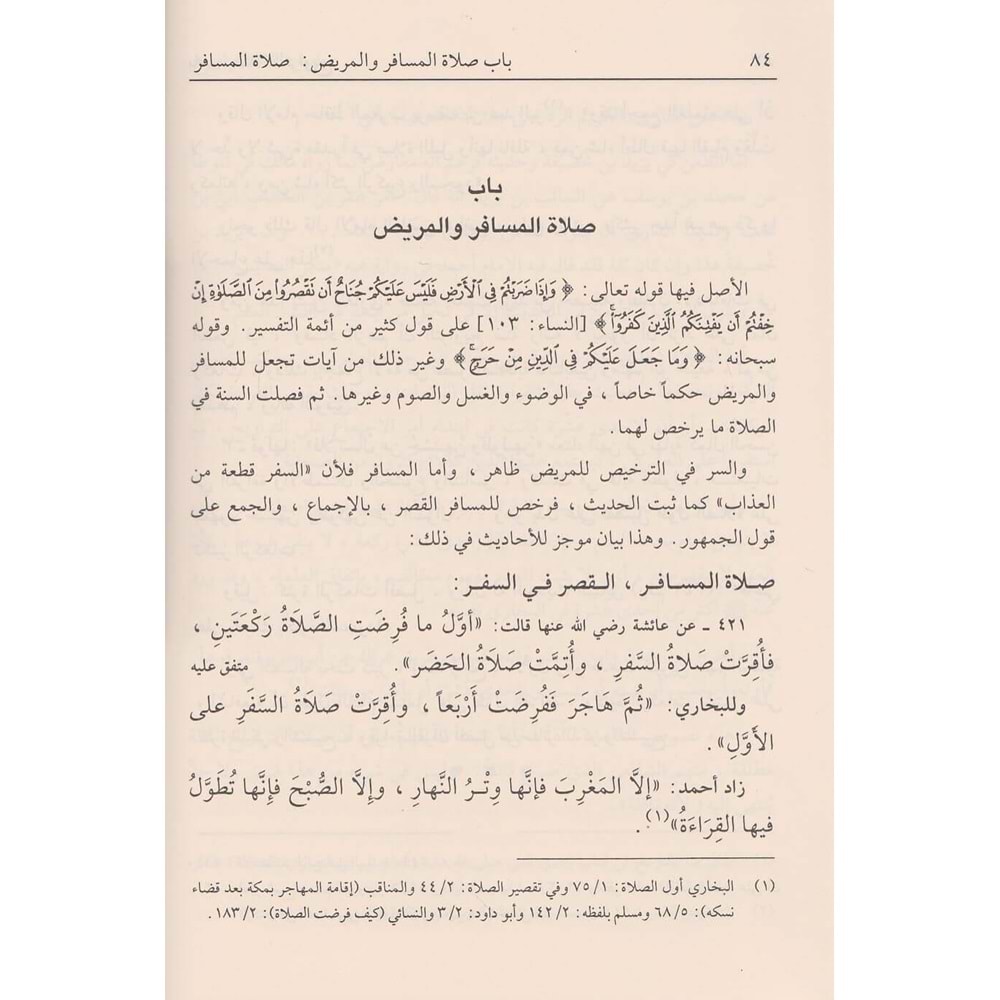 ٨٤ باب صلاة المسافر والمريض: صلاة المسافر
باب
صلاة المسافر والمريض
الأصل فيها قوله تعالى: ﴿ وَإِذَا ضَرَبْتُمْ فِي الْأَرْضِ فَلَيْسَ عَلَيْكُمْ جُنَاحٌ أَن تَقْصُرُوا مِنَ الصَّلَوٰةِ إِنْ
خِفْتُمْ أَن يَفْتِنَكُمُ الَّذِينَ كَفَرُوٓا۟ۚ ﴾ [النساء: ١٠٣] على قول كثير من أئمة التفسير. وقوله
سبحانه: ﴿ وَمَا جَعَلَ عَلَيْكُمْ فِي الدِّينِ مِنْ حَرَجٍۚ ﴾ وغير ذلك من آيات تجعل للمسافر
والمريض حكماً خاصاً ، في الوضوء والغسل والصوم وغيرها. ثم فصلت السنة في
الصلاة ما يرخص لهما.
والسر في الترخيص للمريض ظاهر ، وأما المسافر فلأن «السفر قطعة من
العذاب» كما ثبت الحديث ، فرخص للمسافر القصر ، بالإجماع ، والجمع على
قول الجمهور. وهذا بيان موجز للأحاديث في ذلك:
صلاة المسافر ، القصر في السفر:
٤٢١ ـ عن عائشة رضي الله عنها قالت: «أوَّلُ ما فُرِضَتِ الصَّلَاةُ رَكْعَتَينِ ،
فأُقِرَّتْ صَلَاةُ السَّفَرِ ، وأُتِمَّتْ صَلَاةُ الحَضَرِ». متفق عليه
وللبخاري: «ثُمَّ هَاجَرَ فَفُرِضَتْ أَرْبَعاً ، وأُقِرَّتْ صَلَاةُ السَّفَرِ على
الأوَّلِ».
زاد أحمد: «إلَّا المَغْرِبَ فإنَّها وِتْرُ النَّهارِ ، وإلَّا الصُّبْحَ فإنَّها تُطَوَّلُ
فيها القِرَاءَةُ»(١).
(١) البخاري أول الصلاة: ٧٥/١ وفي تقصير الصلاة: ٤٤/٢ والمناقب (إقامة المهاجر بمكة بعد قضاء
نسكه): ٦٨/٥ ومسلم بلفظه: ١٤٢/٢ وأبو داود: ٣/٢ والنسائي (كيف فرضت الصلاة): ١٨٣/٢.